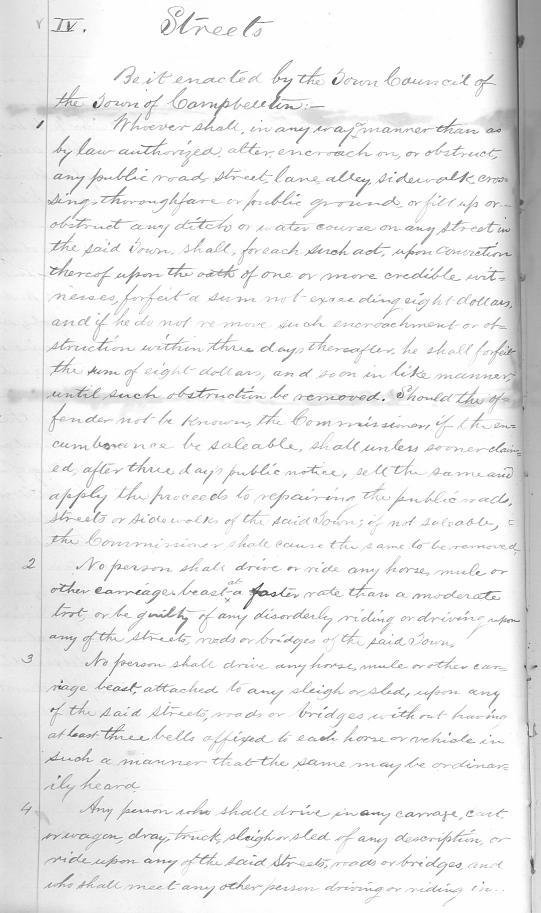 IV. Streets
Be it enacted by the Town Council of
the Town of Campbellton:—
1 Whoever shall, in any way or manner than as
by law authorized, alter, encroach on, or obstruct,
any public road, street, lane, alley, sidewalk, cros-
sing, thoroughfare or public ground, or fill up or
obstruct any ditch or water course on any street in
the said Town, shall, for each such act, upon conviction
thereof upon the oath of one or more credible wit-
nesses, forfeit a sum not exceeding eight dollars,
and if he do not remove such encroachment or ob-
struction within three days thereafter, he shall forfeit
the sum of eight dollars, and so on in like manner,
until such obstruction be removed. Should the of-
fender not be known, the Commissioners, if the en-
cumberance be saleable, shall unless sooner claim-
ed, after three days public notice, sell the same and
apply the proceeds to repairing the public roads,
streets or sidewalks of the said Town; if not saleable,
the Commissioner shall cause the same to be removed.
2 No person shall drive or ride any horse, mule or
other carriage beast at a faster rate than a moderate
trot, or be guilty of any disorderly riding or driving upon
any of the streets, roads or bridges of the said Town.
3 No person shall drive any horse, mule or other car-
riage beast, attached to any sleigh or sled, upon any
of the said streets, roads or bridges without having
at least three bells affixed to each horse or vehicle in
such a manner that the same may be ordinar-
ily heard
4 Any person who shall drive in any carrage, cart,
or wagon, dray, truck, sleigh or sled of any description, or
ride upon any of the said streets, roads or bridges, and
who shall meet any other person driving or riding in